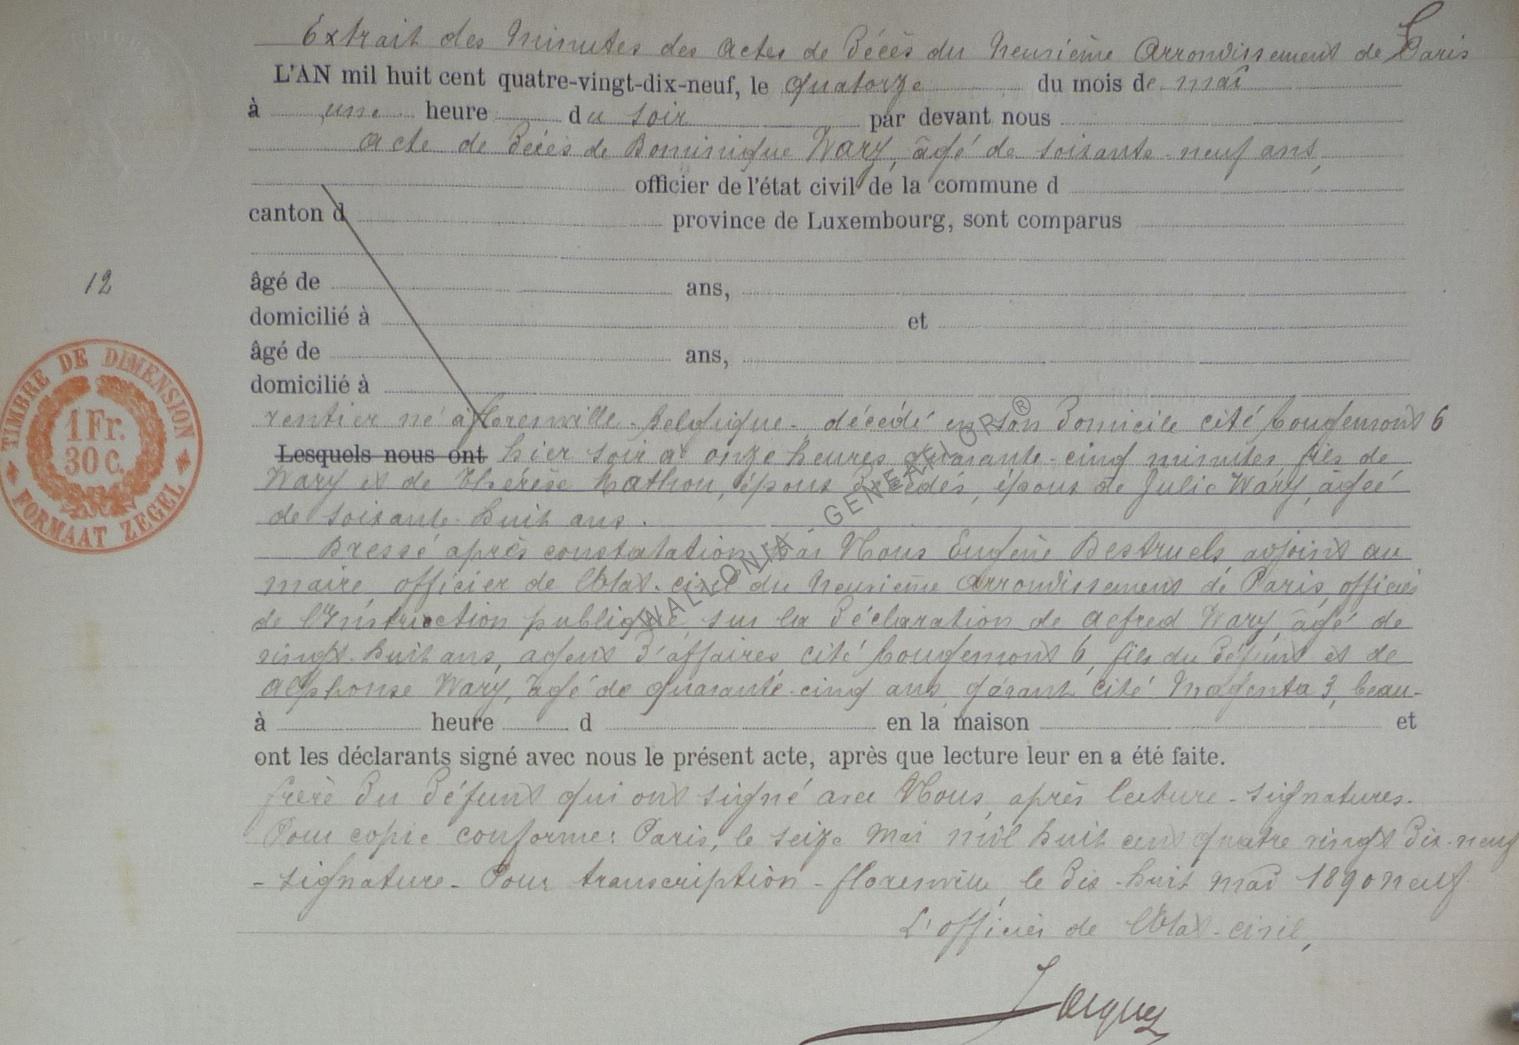 Extrait des Minutes des actes de Décès du Neuvième Arrondissement de Paris
L'AN mil huit cent quatre-vingt-dix-neuf, le quatorze du mois de mai
à une heure du soir par devant nous
acte de Décès de Dominique Wary, âgé de soixante-neuf ans,
officier de l'état civil de la commune d
canton d province de Luxembourg, sont comparus
âgé de ans,
12
domicilié à et
âgé de ans,
domicilié à
TIMBRE DE DIMENSION
1 Fr.
30 C.
FORMAAT ZEGEL
rentier né à florenville - Belgique - décédé en son Domicile cité Rougemont 6
Lesquels nous ont hier soir à onze heures quarante-cinq minutes, fils de
Wary et de Thérèse Mathon, époux Décédés, époux de Julie Wary, âgée
de soixante-huit ans.
Dressé après constatation par Nous Eugène Destruels adjoint au
maire, officier de l'Etat-civil du neuvième Arrondissement de Paris, officier
de l'Instruction publique, sur la Déclaration de Alfred Wary, âgé de
vingt-huit ans, agent D'affaires, cité Rougemont 6, fils du Défunt et de
Alphonse Wary, âgé de quarante-cinq ans, gérant cité Magenta 3, beau-
à heure d en la maison et
ont les déclarants signé avec nous le présent acte, après que lecture leur en a été faite.
frère Du Défunt qui ont signé avec Nous, après lecture - signatures.
Pour copie conforme: Paris, le seize Mai mil huit cent quatre vingt Dix-neuf
- signature - Pour transcription - florenville, le Dix-huit mai 1890 neuf
L'officier de l'Etat-civil,
WALLONIA GENEALOR ®